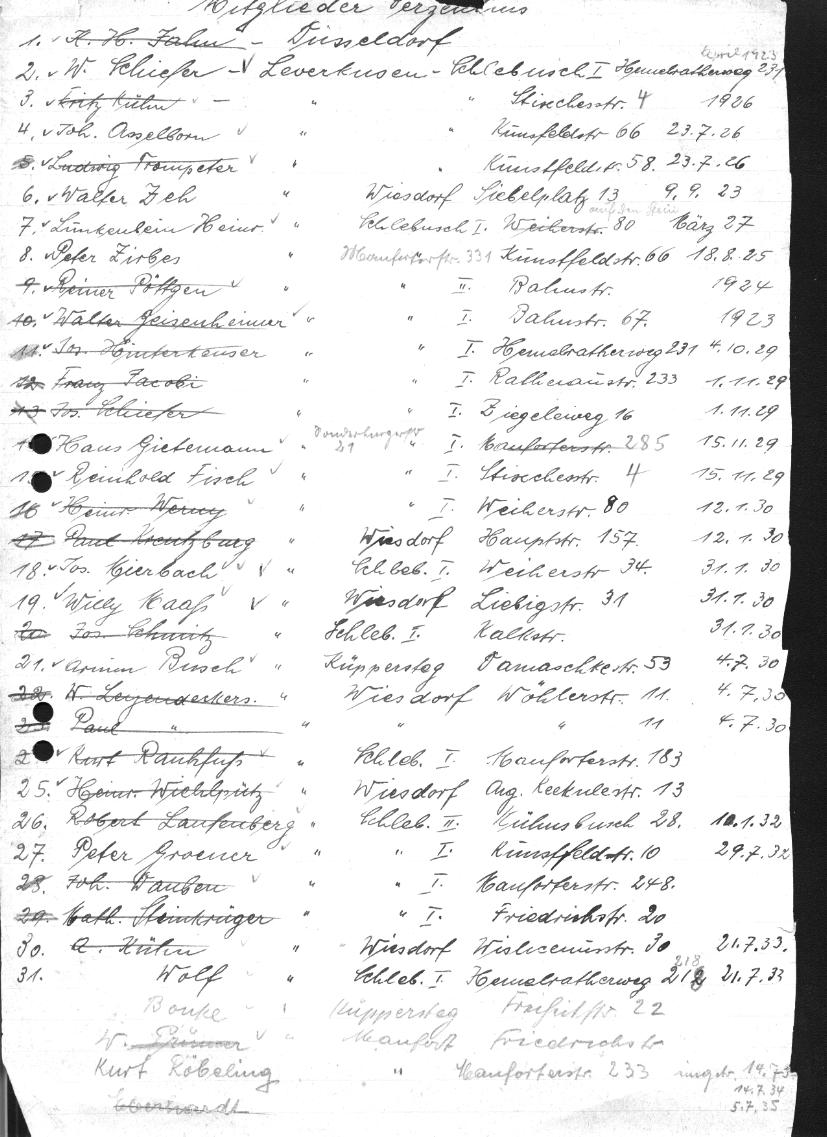 Mitglieder Verzeichnis
1. A. H. Jahn - Düsseldorf
April 1923
2. W. Schiefer - Leverkusen - Schlebusch I Hemelratherweg 231
3. Fritz Kühn - " " Stixchesstr. 4 1926
4. Joh. Asselborn " " Kunstfeldstr 66 23.7.26
5. Ludwig Trompeter " " Kunstfeldstr. 58. 23.7.26
6. Walter Zeh " Wiesdorf Siebelplatz 13 9.9.23
7. Lunkenbein Heinr. " Schlebusch I. Weiherstr. 80 März 27
8. Peter Zirbes Manforterstr. 331 Kunstfeldstr. 66 18.8.25
9. Reiner Pöttgen " " II. Bahnstr. 1924
10. Walter Geisenheimer " " I. Bahnstr. 67. 1923
11. Jos. Hinterkeuser " " I. Hemelratherweg 231 4.10.29
12 Franz Jacobi " " I. Rathenaustr. 233 1.11.29
13 Jos. Schiefer " " I. Ziegeleiweg 16 1.11.29
Hans Gietemann " 21 " I. Manforterstr. 285 15.11.29
Reinhold Fisch " " I. Stixchesstr. 4 15.11.29
16 Heinr. Werny " " I. Weiherstr. 80 12.1.30
17 Paul Kreutzburg " Wiesdorf Hauptstr. 157. 12.1.30
18. Jos. Mierbach " Schleb. I. Weiherstr 34. 31.1.30
19. Willy Maaß " Wiesdorf Liebigstr. 31 31.1.30
20 Jos. Schmitz " Schleb. I. Kalkstr. 31.1.30
21. Armin Busch " Küppersteg Damaschkestr. 53 4.7.30
22. W. Leyendeckers. " Wiesdorf Wöhlerstr. 11. 4.7.30
23. Paul " " " " 11 4.7.30
Kurt Rankfuß " Schleb. I. Manforterstr. 183
25. Heinr. Wichlpütz " Wiesdorf Aug. Keekulestr. 13
26. Robert Laufenberg " Schleb. II. Kühnsbusch 28. 10.1.32
27. Peter Groener " " I. Kunstfeldstr. 10 29.7.32
28. Joh. Dauben " " I. Manforterstr. 248.
29. Math. Steinkrüger " " I. Friedrichstr. 20
30. A. Kühn " " Wiesdorf Wislicenusstr. 30 21.7.33.
218
31. Wolf " Schleb. I. Hemelratherweg 212 21.7.33
Bonke " Küppersteg Freiheitstr. 22
W. Prümer " Manfort Friedrichstr
Kurt Röbeling " Manforterstr. 233 14.7.3
14.7.34
Eberhardt 5.7.35